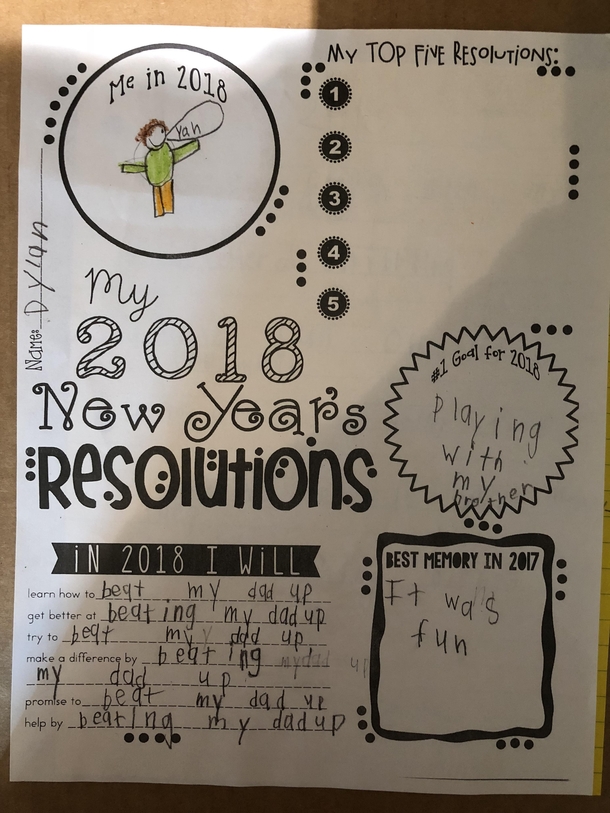 Me in 2018
yah
Name: Dylan
My TOP FIVE RESOLUTIONS:
1
2
3
4
5
My
2018
New Year's
RESOLUTIONS
#1 Goal for 2018
Playing
with
my
brother
IN 2018 I WILL
learn how to beat my dad up
get better at beating my dad up
try to beat my dad up
make a difference by beating
my dad up
promise to beat my dad up
help by beating my dad up
BEST MEMORY IN 2017
It was
fun